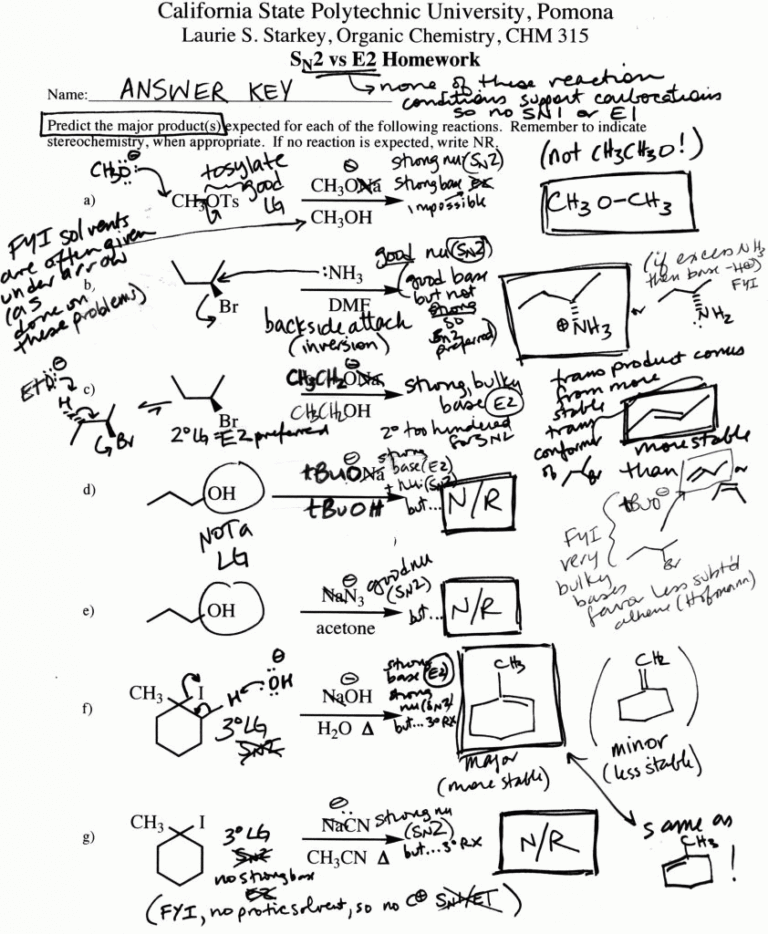 California State Polytechnic University, Pomona
Laurie S. Starkey, Organic Chemistry, CHM 315
SN2 vs E2 Homework
Name: ANSWER KEY
none of these reaction
conditions support carbocations
so no SN1 or E1
Predict the major product(s) expected for each of the following reactions. Remember to indicate
stereochemistry, when appropriate. If no reaction is expected, write NR.
(not CH3CH3O!)
a)
CH3O:⊖
tosylate
good
LG
CH3OTs
⊖
CH3ONa
CH3OH
strong nu (SN2)
strong base E2
impossible
CH3O-CH3
FYI solvents
are often given
under arrow
(as
done on
these problems)
b)
Br
:NH3
DMF
backside attack
(inversion)
good nu (SN2)
(good base
but not
strong
so
SN2
preferred)
⊕NH3
or
NH2
(if excess NH3
then base -H⊕)
FYI
c)
EtO:⊖
H
Br
Br
2° LG = E2 preferred
⊖
CH3CH2ONa
CH3CH2OH
strong, bulky
base (E2)
2° too hindered
for SN2
trans product comes
from more
stable
trans
conformer
of
Br
more stable
than
or
d)
OH
NOT a
LG
⊖
tBuONa
tBuOH
strong
base (E2)
+ nu: (SN2)
but...
N/R
FYI
very
bulky
bases
favor less subst'd
alkene (Hofmann)
tBuO⊖
Br
e)
OH
⊖
NaN3
acetone
good nu
(SN2)
but...
N/R
f)
CH3
I
H
⊖
:OH
3° LG
SN2
⊖
NaOH
H2O Δ
strong
base (E2)
strong
nu (SN2)
but... 3° RX
CH3
major
(more stable)
CH2
minor
(less stable)
same as
CH3
!
g)
CH3
I
3° LG
SN2
no strong base
E2
⊖
NaCN
CH3CN Δ
strong nu
(SN2)
but... 3° RX
N/R
(FYI, no protic solvent, so no C⊕ SN1/E1)